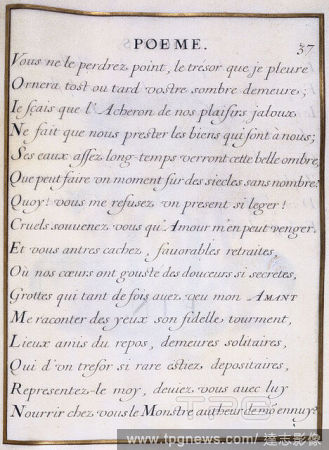 POEME.
37
Vous ne le perdrez point, le tresor que je pleure
Ornera tost ou tard vostre sombre demeure;
Ie sçais que l'Acheron de nos plaisirs jaloux
Ne fait que nous prester les biens qui sont à nous;
Ses eaux assez long-temps verront cette belle ombre,
Que peut faire un moment sur des siecles sans nombre?
Quoy! vous me refusez un present si leger!
Cruels souvenez vous qu'Amour m'en peut venger.
Et vous antres cachez, favorables retraites,
Où nos cœurs ont gousté des douceurs si secretes,
Grottes qui tant de fois avez veu mon AMANT
Me raconter des yeux son fidelle tourment,
Lieux amis du repos, demeures solitaires,
Qui d'vn tresor si rare estiez depositaires,
Representez-le moy, deviez vous avec luy
Nourrir chez vous le Monstre autheur de mō ennuy?
TPG
www.tpgnews.com/達志影像